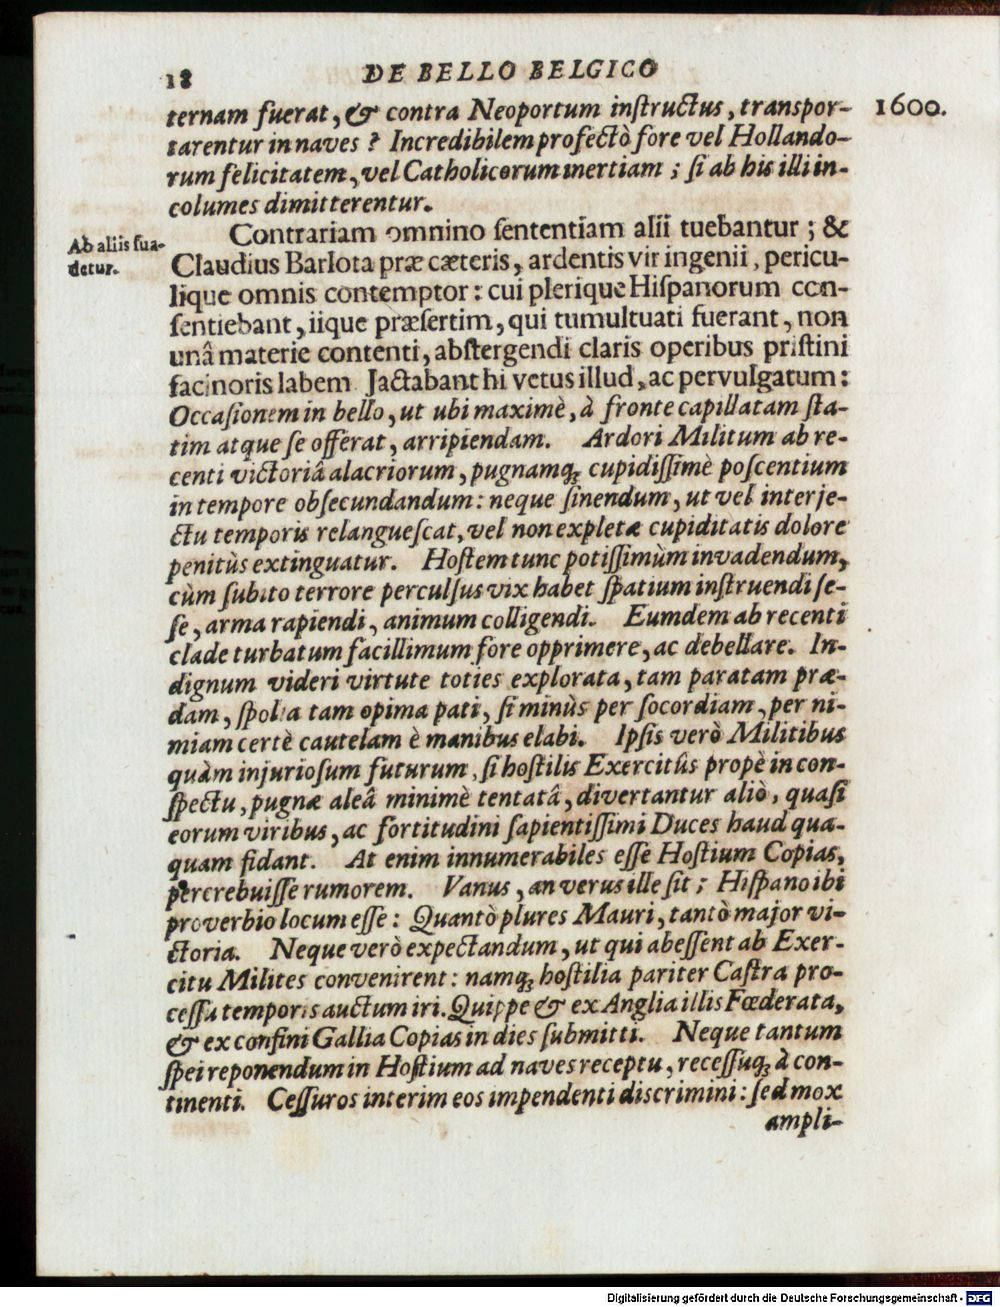 18 DE BELLO BELGICO
ternam fuerat, & contra Neoportum inſtructus, transpor-
1600.
tarentur in naves ? Incredibilem profectò fore vel Hollando-
rum felicitatem, vel Catholicorum inertiam ; ſi ab his illi in-
columes dimitterentur.
Contrariam omnino ſententiam alii tuebantur ; &
Ab aliis ſua-
detur.
Claudius Barlota præ cæteris, ardentis vir ingenii, pericu-
lique omnis contemptor : cui plerique Hiſpanorum con-
ſentiebant, iique præſertim, qui tumultuati fuerant, non
unâ materie contenti, abſtergendi claris operibus priſtini
facinoris labem Jactabant hi vetus illud, ac pervulgatum :
Occaſionem in bello, ut ubi maximè, à fronte capillatam ſta-
tim atque ſe offerat, arripiendam. Ardori Militum ab re-
centi victoriâ alacriorum, pugnamq; cupidiſſimè poſcentium
in tempore obſecundandum : neque ſinendum, ut vel interje-
ctu temporis relangueſcat, vel non expletæ cupiditatis dolore
penitùs extinguatur. Hoſtem tunc potiſſimùm invadendum,
cùm ſubito terrore perculſus vix habet ſpatium inſtruendi ſe-
ſe, arma rapiendi, animum colligendi. Eumdem ab recenti
clade turbatum facillimum fore opprimere, ac debellare. In-
dignum videri virtute toties explorata, tam paratam præ-
dam, ſpolia tam opima pati, ſi minùs per ſocordiam, per ni-
miam certè cautelam è manibus elabi. Ipſis verò Militibus
quàm injurioſum futurum, ſi hoſtilis Exercitûs propè in con-
ſpectu, pugnæ aleâ minimè tentatâ, divertantur aliò, quaſi
eorum viribus, ac fortitudini ſapientiſſimi Duces haud qua-
quam fidant. At enim innumerabiles eſſe Hoſtium Copias,
percrebuiſſe rumorem. Vanus, an verus ille ſit ; Hiſpano ibi
proverbio locum eſſe : Quantò plures Mauri, tantò major vi-
ctoria. Neque verò expectandum, ut qui abeſſent ab Exer-
citu Milites convenirent : namq; hoſtilia pariter Caſtra pro-
ceſſu temporis auctum iri. Quippe & ex Anglia illis Fœderata,
& ex confini Gallia Copias in dies ſubmitti. Neque tantum
ſpei reponendum in Hoſtium ad naves receptu, receſſuq; à con-
tinenti. Ceſſuros interim eos impendenti diſcrimini : ſed mox
ampli-
Digitalisierung gefördert durch die Deutsche Forschungsgemeinschaft - DFG